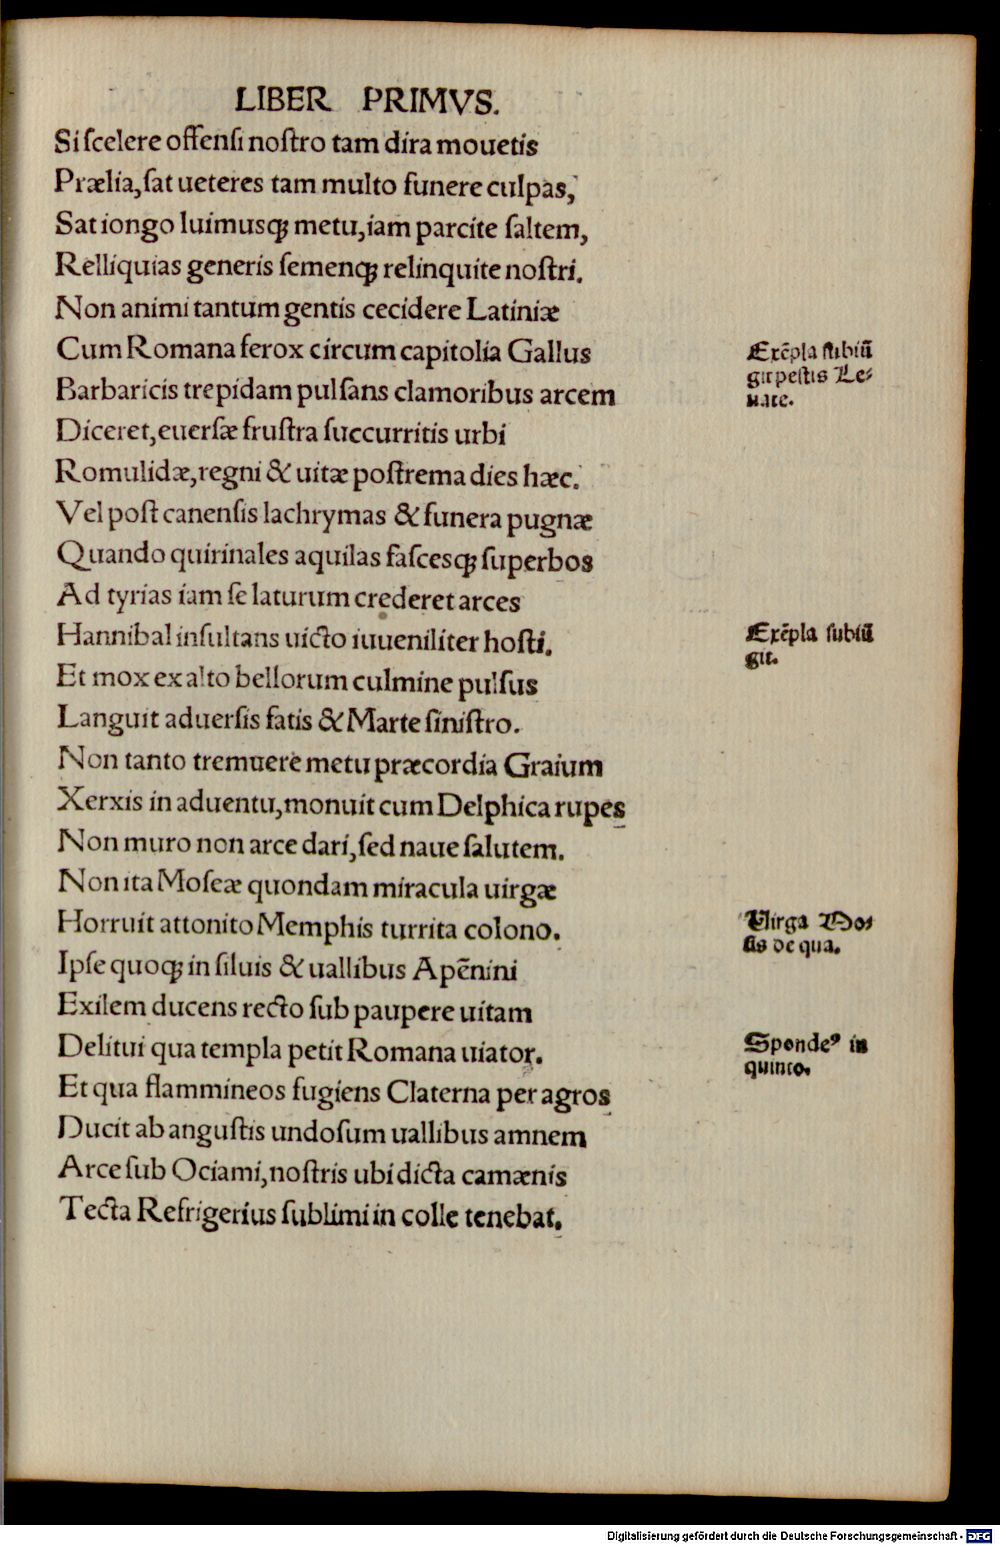 LIBER PRIMVS.
Si ſcelere offenſi noſtro tam dira mouetis
Prælia, ſat ueteres tam multo funere culpas,
Sat iongo luimusqꝫ metu, iam parcite ſaltem,
Relliquias generis ſemenqꝫ relinquite noſtri.
Non animi tantum gentis cecidere Latiniæ
Cum Romana ferox circum capitolia Gallus
Exēpla ſubiū
git peſtis Le⸗
uate.
Barbaricis trepidam pulſans clamoribus arcem
Diceret, euerſæ fruſtra ſuccurritis urbi
Romulidæ, regni & uitæ poſtrema dies hæc.
Vel poſt canenſis lachrymas & funera pugnæ
Quando quirinales aquilas faſcesqꝫ ſuperbos
Ad tyrias iam ſe laturum crederet arces
Hannibal inſultans uicto iuueniliter hoſti.
Exēpla ſubiū
git.
Et mox ex alto bellorum culmine pulſus
Languit aduerſis fatis & Marte ſiniſtro.
Non tanto tremuere metu præcordia Graium
Xerxis in aduentu, monuit cum Delphica rupes
Non muro non arce dari, ſed naue ſalutem.
Non ita Moſeæ quondam miracula uirgæ
Horruit attonito Memphis turrita colono.
Virga Mo⸗
ſis de qua.
Ipſe quoqꝫ in ſiluis & uallibus Apēnini
Exilem ducens recto ſub paupere uitam
Delitui qua templa petit Romana uiator.
Spondeꝰ in
quinto.
Et qua flammineos fugiens Claterna per agros
Ducit ab anguſtis undoſum uallibus amnem
Arce ſub Ociami, noſtris ubi dicta camænis
Tecta Refrigerius ſublimi in colle tenebat.
Digitalisierung gefördert durch die Deutsche Forschungsgemeinschaft - DFG